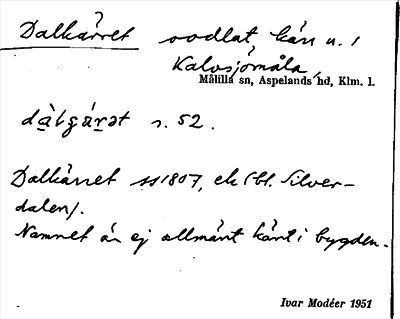 Dalkärret oodlat kärr u. /
Kalvsjömåla,
Målilla sn, Aspelands hd, Klm. l.
s. 52.
Dalkärret 1807, ek (bl. Silver-
dalen).
Namnet är ej allmänt känt i bygden.
Ivar Modéer 1951